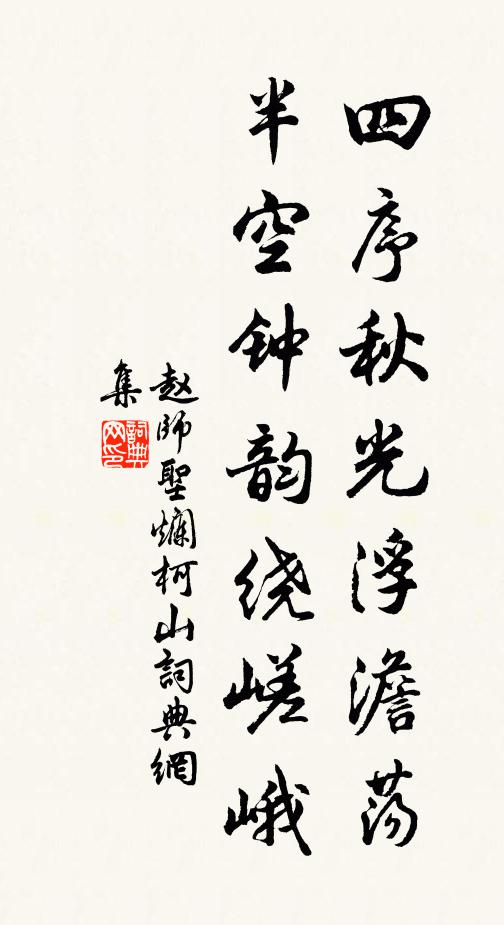 四序秋光浮澹荡
半空钟韵绕嵯峨
赵师聖爛柯山詞典網
集
詞典网印